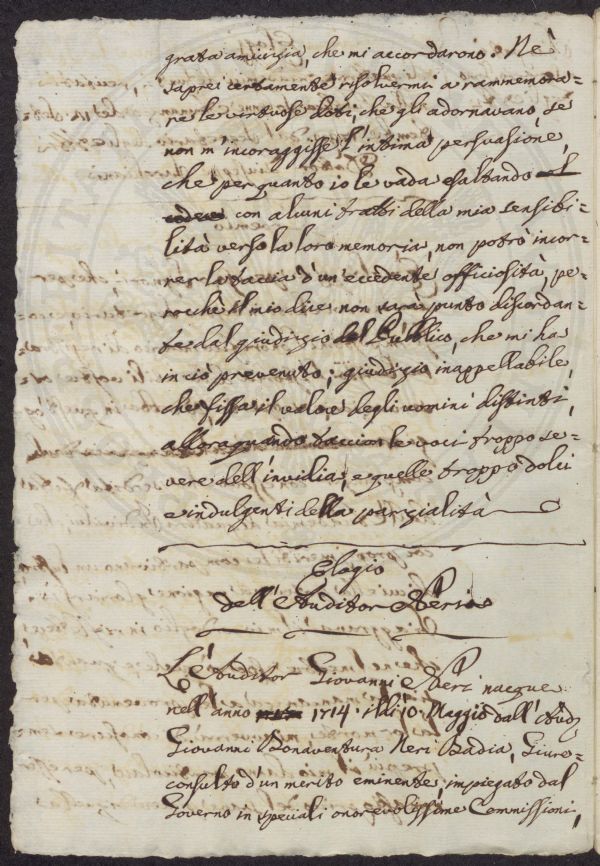 grata amicizia, che mi accordarono. Nè
saprei certamente risolvermi a rammemora=
re le virtuose doti, che gli adornavano, se
non m'incoraggisse l'intima persuasione,
che per quanto io le vada esaltando
con alcuni tratti della mia sensibi=
lità verso la loro memoria, non potrò incor=
rer la taccia d'un eccedente officiosità, pe=
rocchè il mio dire non sarà punto discordan=
te dal giudizio del Pubblico, che mi ha
in ciò prevenuto; giudizio inappellabile,
che fissa il valore degli uomini distinti,
allora quando tacciono le voci troppo se=
vere dell'invidia, e quelle troppo dolci
e indulgenti della parzialità
Elogio
dell'Auditor Neri
L'Auditor Giovanni Neri nacque
nell'anno 1714. il dì 10. Maggio dall'Aud.
Giovanni Bonaventura Neri Badia, Giure=
consulto d'un merito eminente, impiegato dal
Governo in speciali onorevolissime Commissioni,